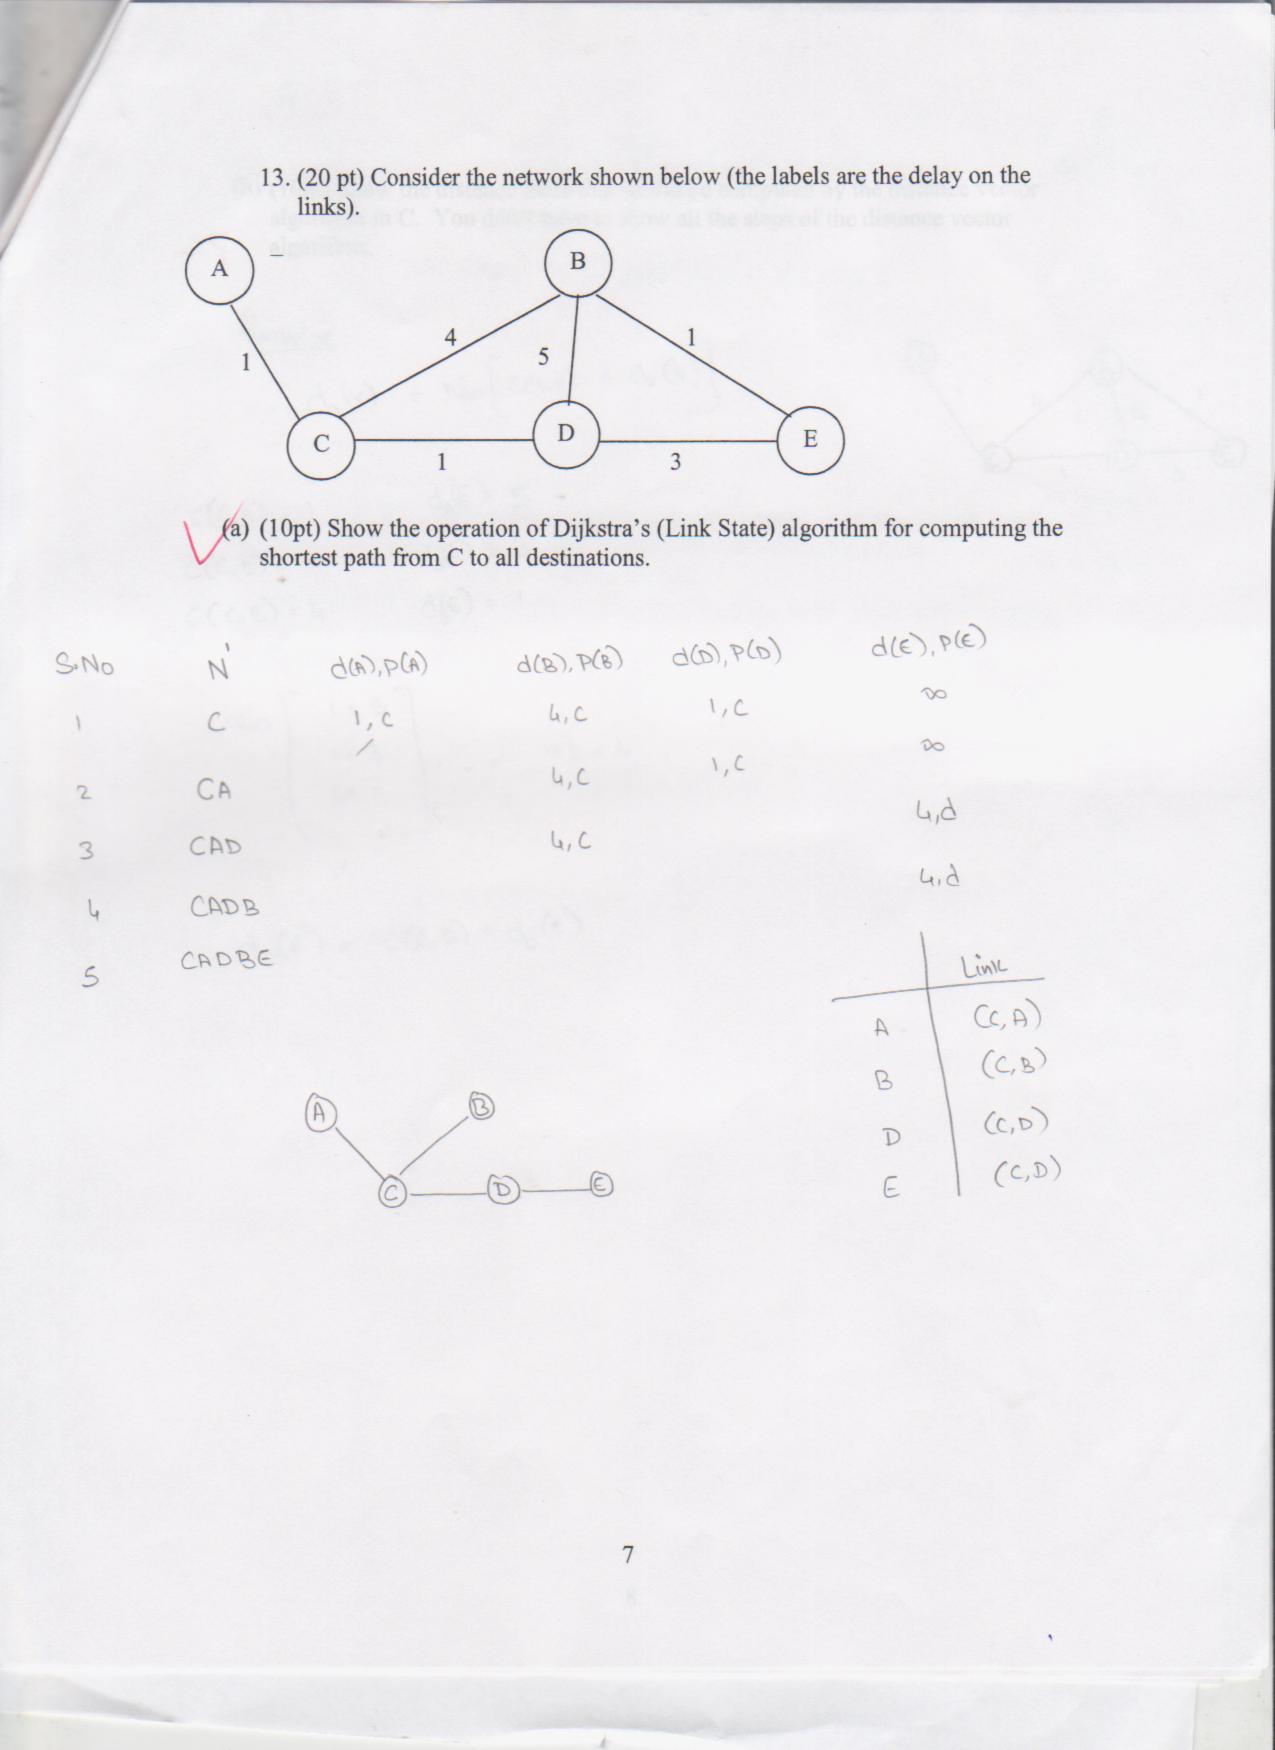 13. (20 pt) Consider the network shown below (the labels are the delay on the
links).
A
B
4
1
5
1
C
D
E
1
3
(a) (10pt) Show the operation of Dijkstra's (Link State) algorithm for computing the
shortest path from C to all destinations.
S.No N' d(A),P(A) d(B),P(B) d(D),P(D) d(E),P(E)
1 C 1,C 4,C 1,C ∞
2 CA 4,C 1,C ∞
3 CAD 4,C 4,d
4 CADB 4,d
5 CADBE
Link
A (C,A)
B (C,B)
D (C,D)
E (C,D)
A B
C D E
7